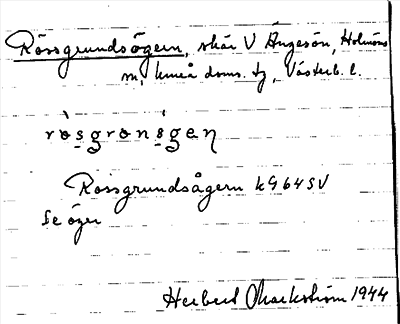 Rössgrundsögern, skär V Ängesön, Holmöns
sn, Umeå doms. tg, Västerb. l.
ròsgronsgen
Rossgrundsågern kG64SV
Se öger
Herbert Markström 1944